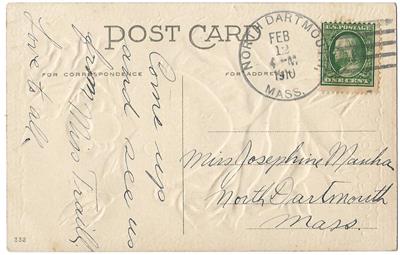 POST CARD
FOR CORRESPONDENCE
FOR ADDRESS
NORTH DARTMOUTH
FEB
12
4 PM
1910
MASS.
U.S. POSTAGE
ONE CENT
Come up
and see us
from Miss
Love to all,
Miss Josephine
North Dartmouth
Mass.
332